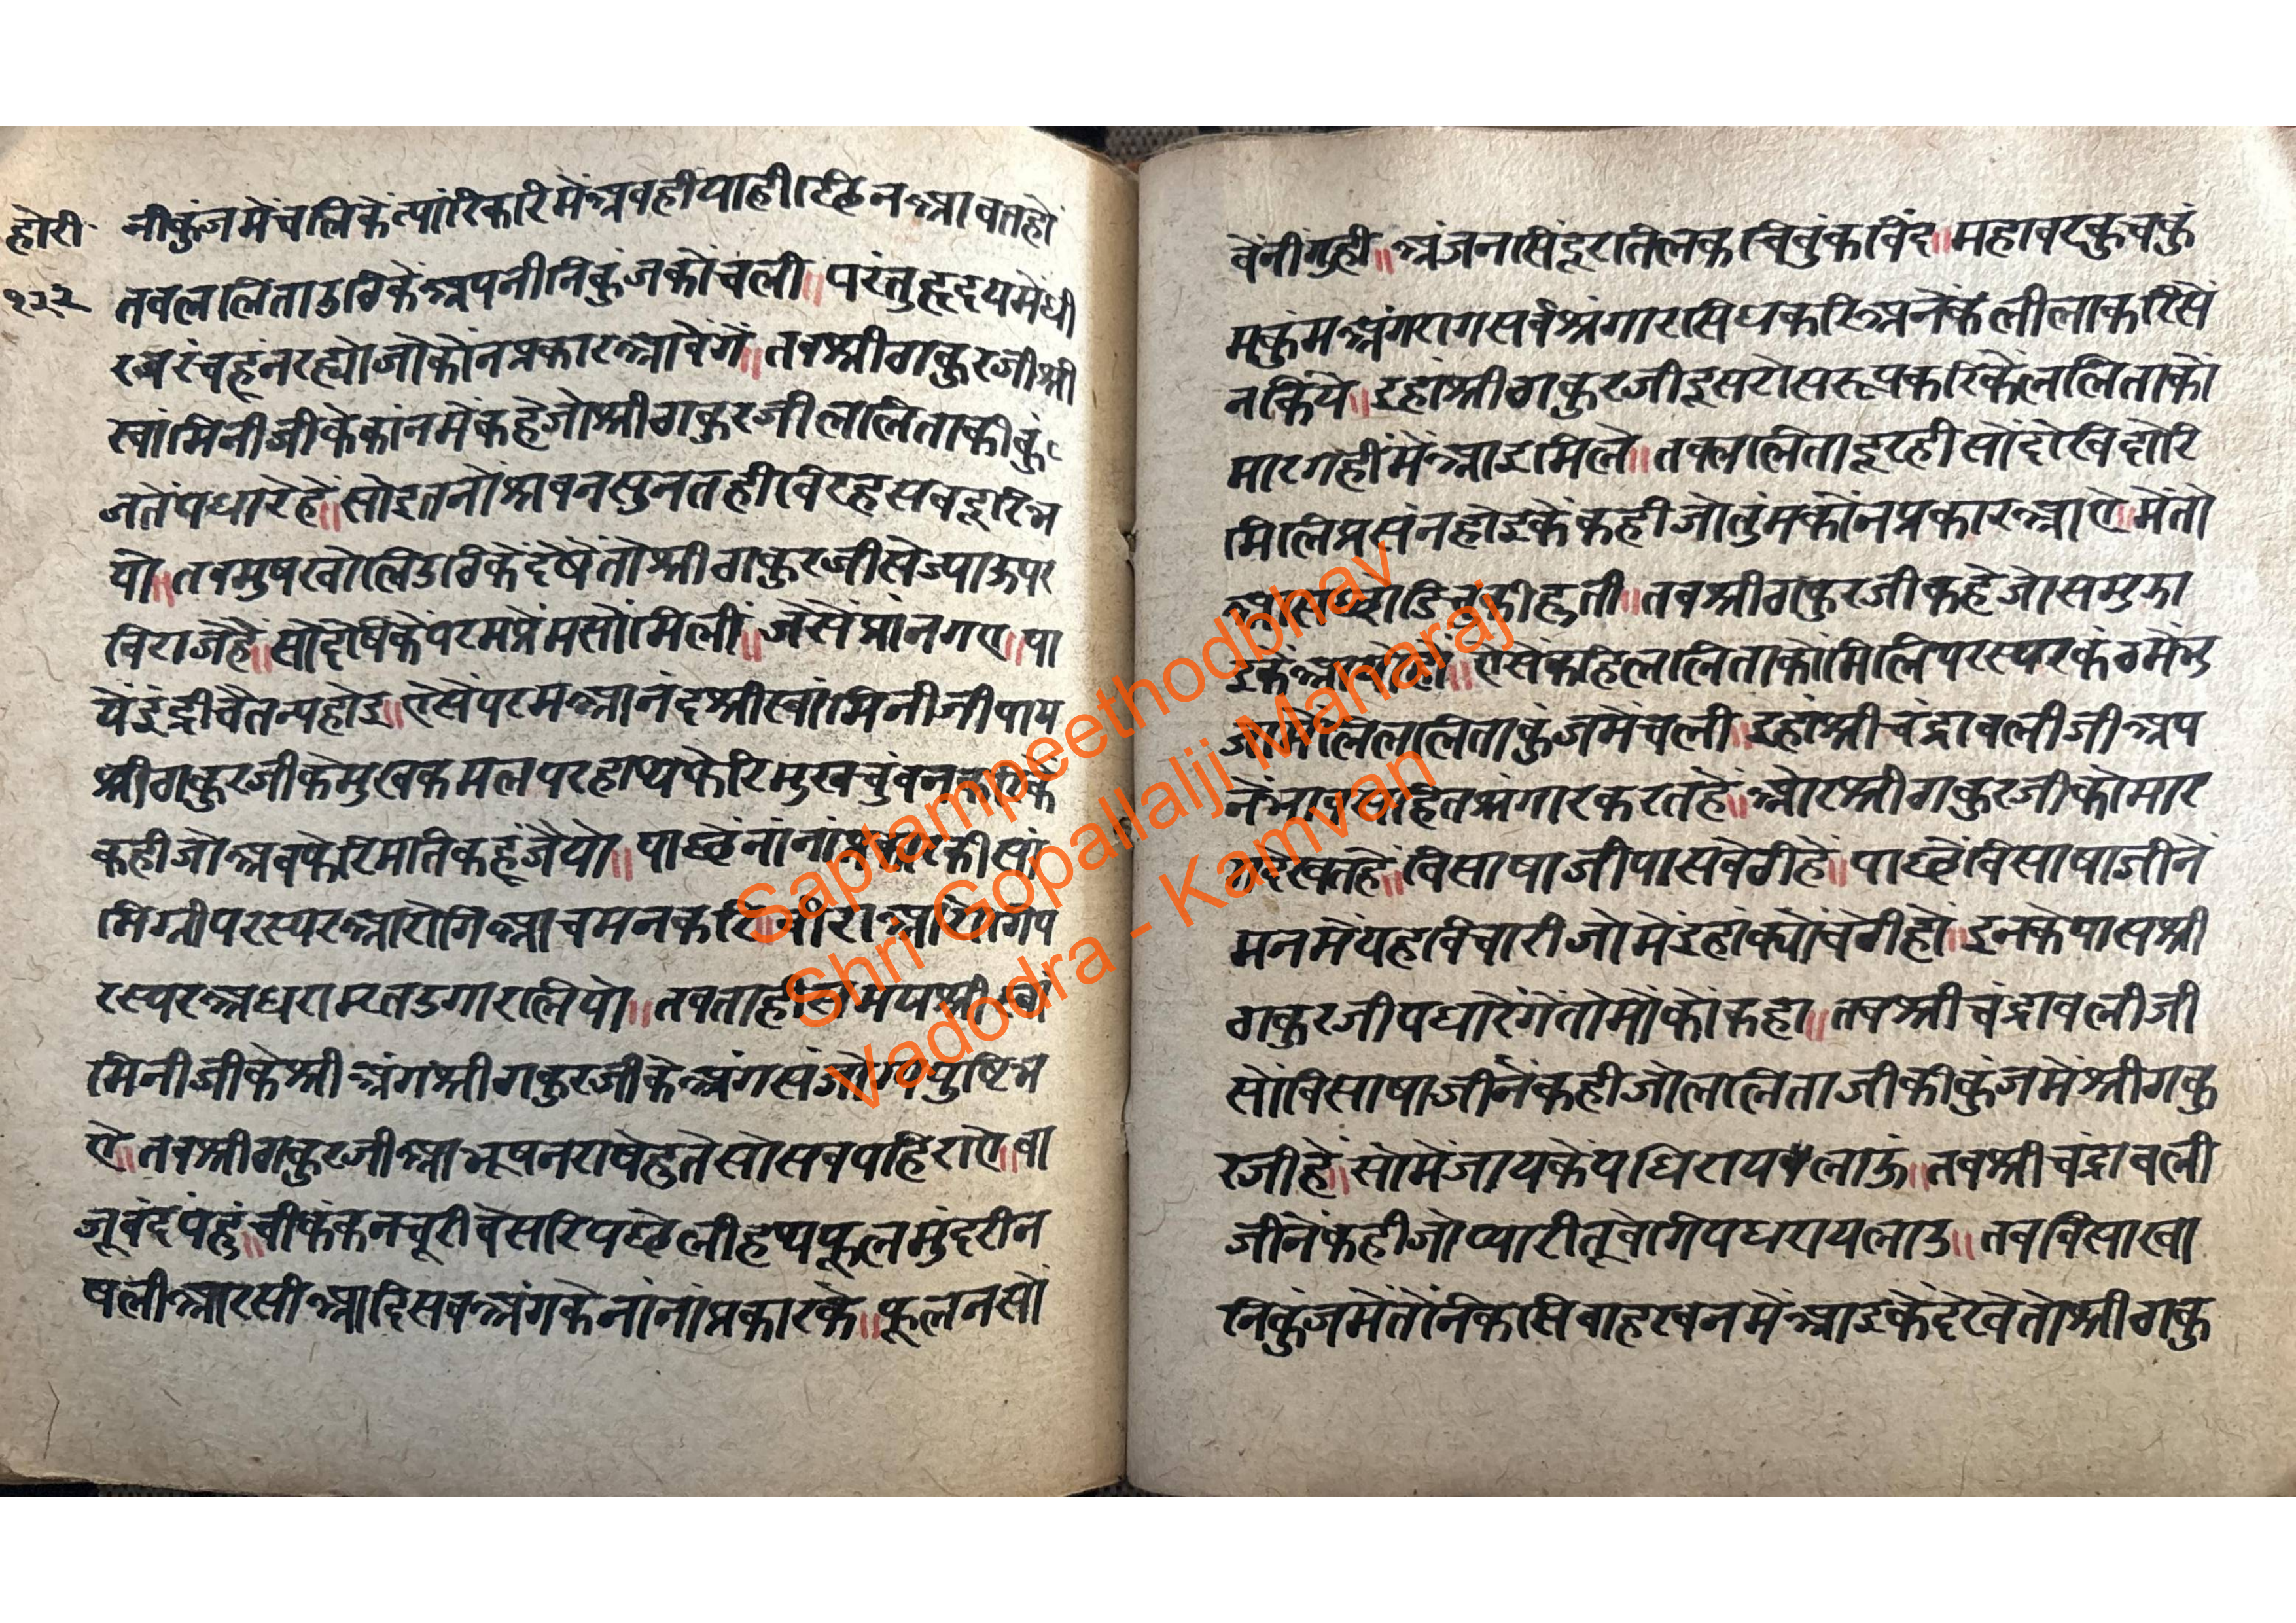 होरी
१३२
नीकुंजमेंचलिकें त्यारिकरिमेंअबहीयाहीछिनआवतहों
तबललिताउठिकेंअपनीनिकुंजकोंचली॥ परंतुहृदयमेंधी
रजरंचहूंनरह्योजोकोनप्रकारआवेंगें॥तबश्रीठाकुरजीश्री
स्वांमिनीजीकेकांनमेंकहेजोश्रीठाकुरजीललिताकीकुं
जतेंपधारेहें॥सोइतनोंश्रवनसुनतहीविरहसबदूरिभ
यो॥तबमुषखोलिउठिकेंदेंषेंतोश्रीठाकुरजीसेज्याऊपर
बिराजेहें॥सोदेषिकेंपरमप्रेंमसोंमिलीं॥जेसेंप्रांनगए॥पा
यें इंद्रीचैतन्यहोइ॥ऐसेंपरमआनंदश्रीस्वांमिनीजीपाय
श्रीठाकुरजीकेमुखकमलपरहाथफेरिमुखचुंबनकरिकें
कहीजोअबफेरिमतिकहूंजैयो॥पाछेंनांनांप्रकारकीसां
मिग्रीपरस्परआरोगिआचमनकरि॥बीराआरोगिप
रस्परअधरामृतउगारलियो॥तबताहीसमयश्रीस्वां
मिनीजीकेश्रीअंगश्रीठाकुरजीकेअंगसंजोगपुष्टिभ
ऐ॥तबश्रीठाकुरजीआभूषनराषेहुतेसोसबपहिराऐ॥बा
जूबंदपंहुंची॥कंकनचूरीबेसरिपछेलीहथफूलमुंदरीन
षलीआरसीआदिसबअंगकेनांनांप्रकारके॥फूलनसों
वेंनींगुही॥अंजनसिंदूरतिलकचिबुंकबिंद॥महावरकुचकुं
मकुंमअंगरागसर्वश्रंगारसिधकरिअनेकलीलाकरिसे
नकिये॥इहांश्रीठाकुरजीदूसरोसरूपकरिकैंललिताकों
मारगहीमेंआइमिले॥तबललितादूरहीसोंदेखिदोरि
मिलिप्रसंनहोइकेंकहीजोतुंमकोंनप्रकारआऐ॥मेंतो
आसछोडिचुकीहुती॥तबश्रीठाकुरजीकहेजोसमुझा
इकेंआयोहों॥ऐसेंकहिललिताकोंमिलिपरस्परकंठमेंभु
जामेलिललिताकुंजमेंचली॥इहांश्रीचंद्रावलीजीअप
नेंभावसहितश्रंगारकरतहें॥ओरश्रीठाकुरजीकोमार
गदेखतहें॥विसाषाजीपासबेठीहें॥पाछेंविसाषाजीनें
मनमेंयहविचारीजोमेंइंहांक्योंबेठीहों॥इनकेपासश्री
ठाकुरजीपधारेंगेंतोमोंकोंकहा॥तबश्रीचंद्रावलीजी
सोंविसाषाजीनेंकहीजोललिताजीकीकुंजमेंश्रीठाकु
रजीहें॥सोमेंजायकेंपधिरायलाऊं॥तबश्रीचंद्रावली
जीनेंकहीजोप्यारीतूबेगिपधरायलाउ॥तबविसाखा
निकुंजमेंतेंनिकसिबाहरबनमेंआइकेंदेखेतोश्रीठाकु
Saptampeethodbhav
Shri Gopallalji Maharaj
Vadodra - Kamvan